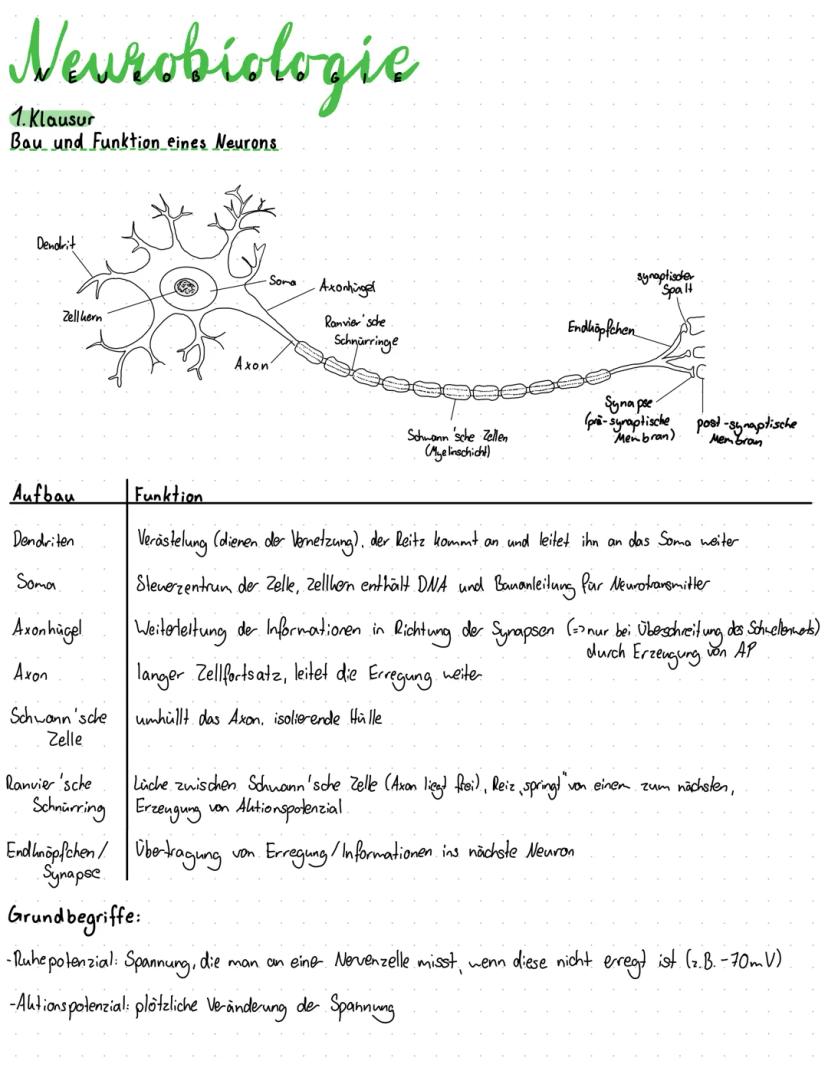 Neurobiologie
NEUROBIOLOGIE
1. Klausur
Bau und Funktion eines Neurons
Dendrit
Zellkern
Soma
Axonhügel
Ranvier'sche
Schnürringe
Axon
Schwann'sche Zellen
(Myelinschicht)
Endknöpfchen
synaptischer
Spalt
Synapse
(prä-synaptische
Membran)
post-synaptische
Membran
Aufbau Funktion
Dendriten Verästelung (dienen der Vernetzung), der Reitz kommt an und leitet ihn an das Soma weiter
Soma Steuerzentrum der Zelle, Zellkern enthält DNA und Bauanleitung für Neurotransmitter
Axonhügel Weiterleitung der Informationen in Richtung der Synapsen (=> nur bei Überschreitung des Schwellenwerts)
durch Erzeugung von AP
Axon langer Zellfortsatz, leitet die Erregung weiter
Schwann'sche umhüllt das Axon, isolierende Hülle
Zelle
Ranvier'sche Lücke zwischen Schwann'sche Zelle (Axon liegt frei), Reiz „springt" von einem zum nächsten,
Schnürring Erzeugung von Aktionspotenzial
Endknöpfchen/ Übertragung von Erregung/Informationen ins nächste Neuron
Synapse
Grundbegriffe:
-Ruhepotenzial: Spannung, die man an einer Nervenzelle misst, wenn diese nicht erregt ist (z.B. -70mV)
-Aktionspotenzial: plötzliche Veränderung der Spannung